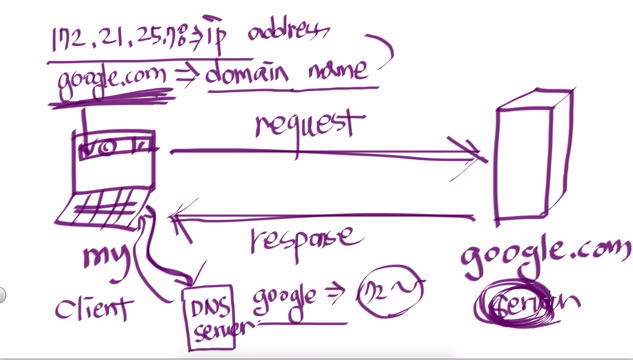 172.21.25.78 ⇒ ip address
google.com ⇒ domain name
request
response
my
Client
DNS
server
google ⇒ 172~
google.com
server